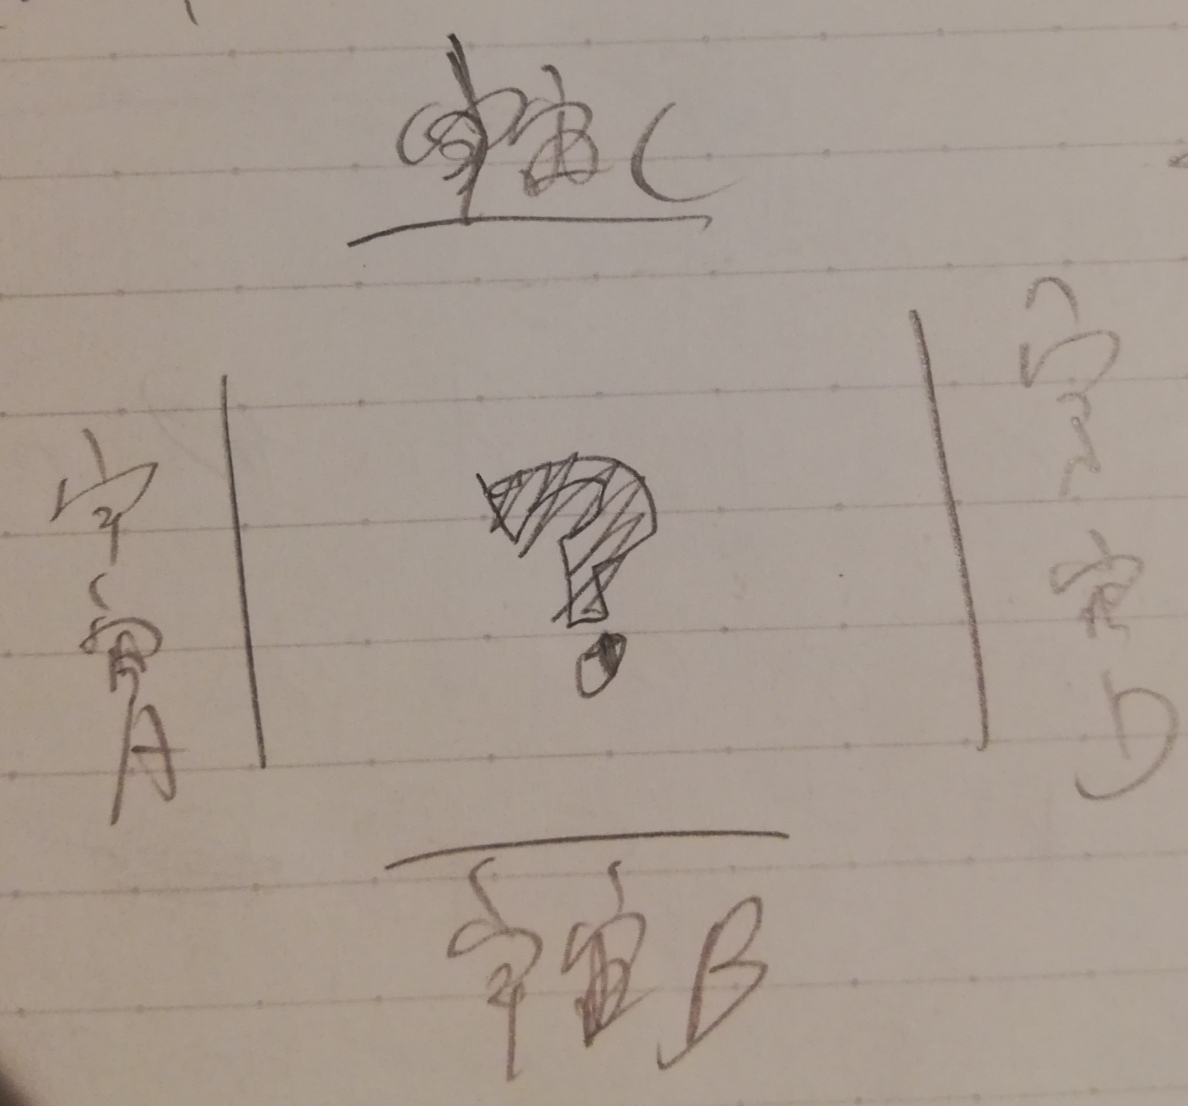 宇宙C
宇宙A
?
宇宙D
宇宙B